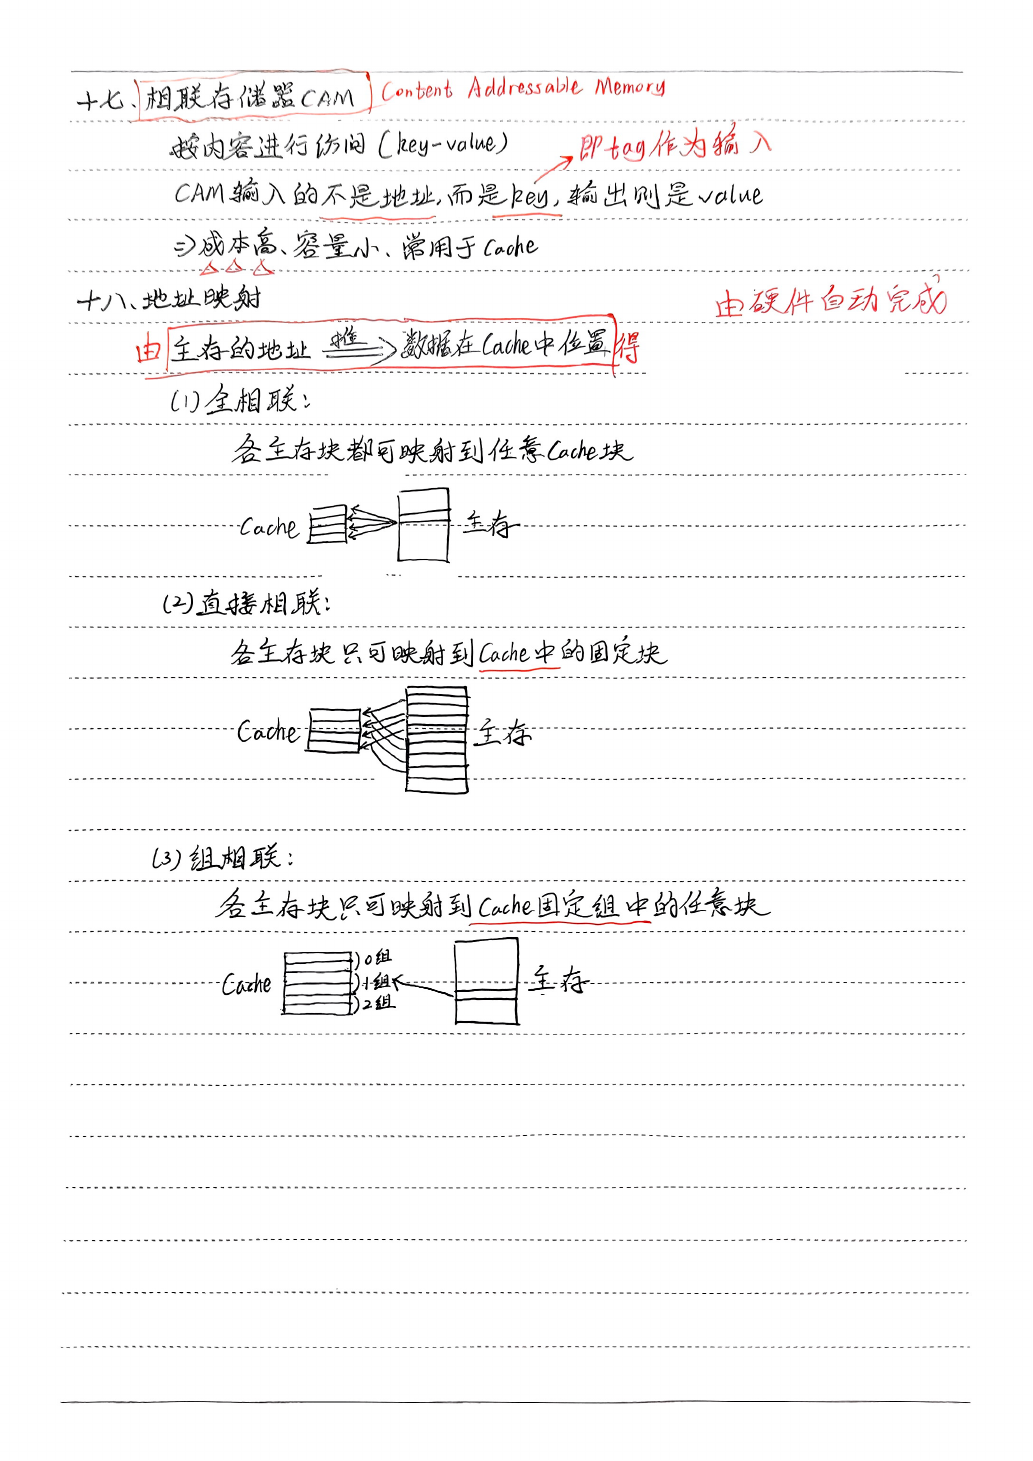 十七、相联存储器CAM Content Addressable Memory
按内容进行访问(key-value) 即tag作为输入
CAM输入的不是地址,而是key,输出则是value
⇒成本高、容量小、常用于Cache
十八、地址映射 由硬件自动完成
由 主存的地址 推 数据在Cache中位置 得
(1)全相联:
各主存块都可映射到任意Cache块
Cache 主存
(2)直接相联:
各主存块只可映射到Cache中的固定块
Cache 主存
(3)组相联:
各主存块只可映射到Cache固定组中的任意块
0组
Cache 1组 主存
2组